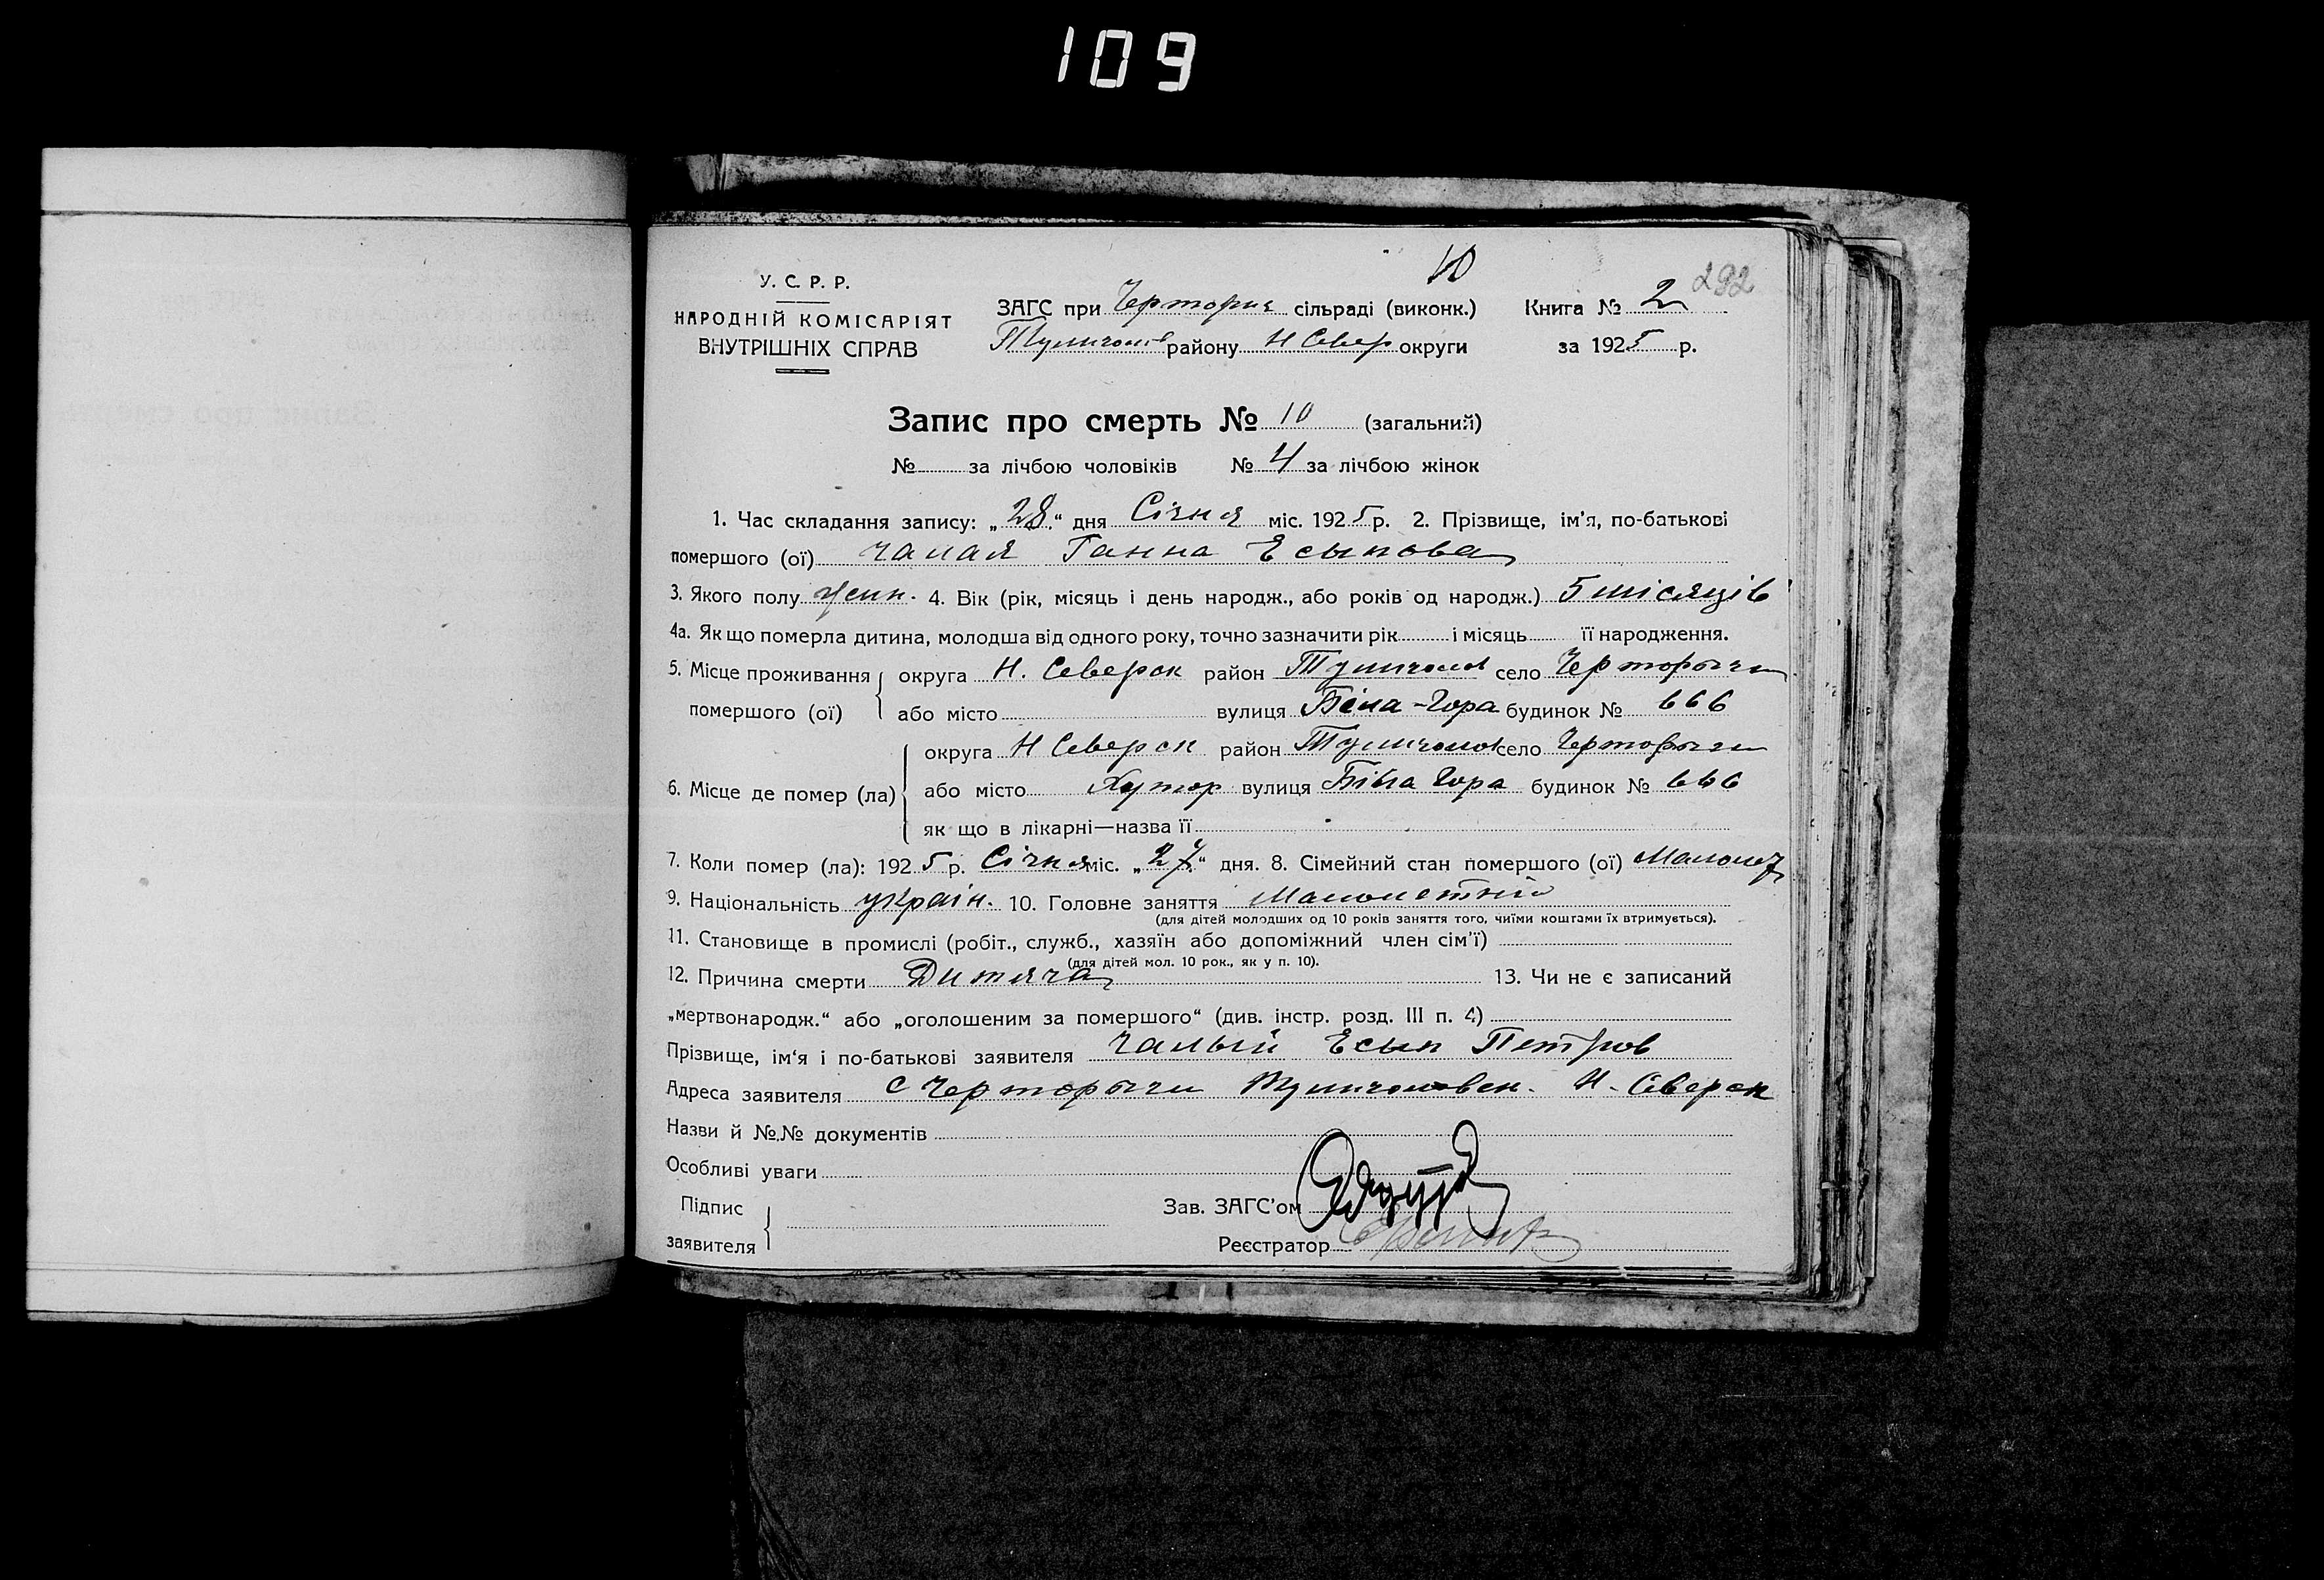 109
10
292
У. С. Р. Р.
НАРОДНІЙ КОМІСАРІЯТ
ВНУТРІШНІХ СПРАВ
ЗАГС при Чертория сільраді (виконк.) Книга № 2
району Н Север округи за 1925 р.
Запис про смерть № 10 (загальний)
№ за лічбою чоловіків № 4 за лічбою жінок
1. Час складання запису: „28“ дня Січня міс. 1925 р. 2. Прізвище, ім'я, по-батькові
помершого (ої) Чалая Ганна Есыпова
3. Якого полу жин. 4. Вік (рік, місяць і день народж., або років од народж.) 5 місяців
4а. Як що померла дитина, молодша від одного року, точно зазначити рік і місяць її народження.
5. Місце проживання округа Н. Северск район село
помершого (ої) або місто вулиця Біла-Гора будинок № 666
округа Н Северск район село
6. Місце де помер (ла) або місто Хутор вулиця Біла Гора будинок № 666
як що в лікарні—назва її
7. Коли помер (ла): 1925 р. Січня міс. „27“ дня. 8. Сімейний стан помершого (ої) Малолет
9. Національність україн. 10. Головне заняття Малолетній
(для дітей молодших од 10 років заняття того, чиїми коштами їх втримується).
11. Становище в промислі (робіт., служб., хазяїн або допоміжний член сім'ї)
(для дітей мол. 10 рок., як у п. 10).
12. Причина смерти Дитяча 13. Чи не є записаний
„мертвонародж.“ або „оголошеним за помершого“ (див. інстр. розд. III п. 4)
Прізвище, ім'я і по-батькові заявителя Чалый Есып Петров
Адреса заявителя с Н-Сверск
Назви й №.№ документів
Особливі уваги
Підпис
заявителя
Зав. ЗАГС'ом
Реєстратор